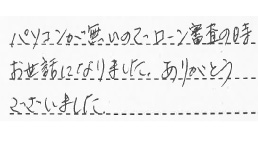 パソコンが無いのでローン審査の時
お世話になりました。ありがとう
ございました